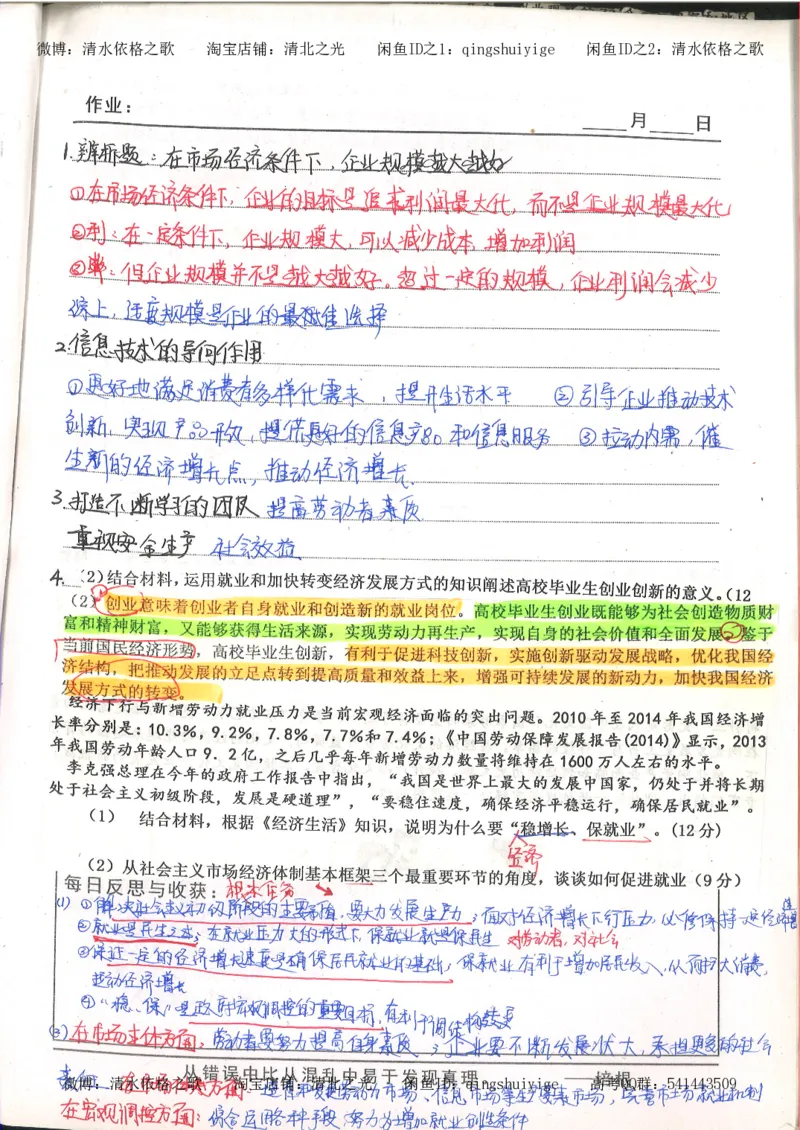 微博：清水依格之歌 淘宝店铺：清北之光 闲鱼ID之1：qingshuiyige 闲鱼ID之2：清水依格之歌
作业：
月 日
1.辨析题：在市场经济条件下，企业规模越大越好
①在市场经济条件下，企业的目标是追求利润最大化，而不是企业规模最大化
②利：在一定条件下，企业规模大，可以减少成本，增加利润
③弊：但企业规模并不是越大越好。超过一定的规模，企业利润会减少
综上，适度规模是企业的最佳选择
2.信息技术的导向作用
①更好地满足消费者多样化需求，提升生活水平 ②引导企业推动技术
创新，实现产品开发，提供更好的信息产品和信息服务 ③拉动内需，催
生新的经济增长点，推动经济增长
3.打造不断学习的团队 提高劳动者素质
重视安全生产 社会效益
4.（2）结合材料，运用就业和加快转变经济发展方式的知识阐述高校毕业生创业创新的意义。(12
（2）①创业意味着创业者自身就业和创造新的就业岗位。高校毕业生创业既能够为社会创造物质财
富和精神财富，又能够获得生活来源，实现劳动力再生产，实现自身的社会价值和全面发展。②鉴于
当前国民经济形势，高校毕业生创新，有利于促进科技创新，实施创新驱动发展战略，优化我国经
济结构，把推动发展的立足点转到提高质量和效益上来，增强可持续发展的新动力，加快我国经济
发展方式的转变。
经济下行与新增劳动力就业压力是当前宏观经济面临的突出问题。2010 年至 2014 年我国经济增
长率分别是：10.3%，9.2%，7.8%，7.7%和 7.4%；《中国劳动保障发展报告(2014)》显示，2013
年我国劳动年龄人口 9．2 亿，之后几乎每年新增劳动力数量将维持在 1600 万人左右的水平。
李克强总理在今年的政府工作报告中指出，“我国是世界上最大的发展中国家，仍处于并将长期
处于社会主义初级阶段，发展是硬道理”，“要稳住速度，确保经济平稳运行，确保居民就业”。
（1） 结合材料，根据《经济生活》知识，说明为什么要“稳增长、保就业”。(12 分)
经济
（2）从社会主义市场经济体制基本框架三个最重要环节的角度，谈谈如何促进就业（9 分）
每日反思与收获：根本任务
(1) ①解决社会主义初级阶段的主要矛盾，要大力发展生产力；面对经济增长下行压力，必须保持一定经济增速
②就业是民生之本；在就业压力大的形式下，保就业就是保民生 对劳动者，对社会
③保证一定的经济增长速度是确保居民就业的基础，保就业有利于增加居民收入，从而扩大消费，
拉动经济增长
④“稳、保”是政府宏观调控的重要目标，有利于调结构转变
(2)在市场主体方面：劳动者要努力提高自身素质；企业要不断发展状大，承担更多的社会
从错误中比从混乱中易于发现真理 培根
责任
微博：清水依格之歌 淘宝店铺：清北之光 闲鱼ID：qingshuiyige 高考QQ群：541443509
在宏观调控方面：综合运用各种手段，努力为增加就业创造条件